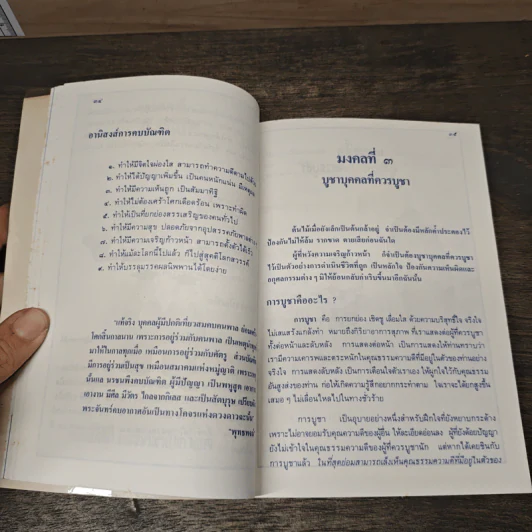 ๓๔
อานิสงส์การคบบัณฑิต
๑. ทำให้มีจิตใจผ่องใส สามารถทำความดีตามไปด้วย
๒. ทำให้ได้ปัญญาเพิ่มขึ้น เป็นคนหนักแน่น มีเหตุผล
๓. ทำให้มีความเห็นถูก เป็นสัมมาทิฐิ
๔. ทำให้ไม่ต้องเศร้าโศกเดือดร้อน เพราะทำผิด
๕. ทำให้เป็นที่ยกย่องสรรเสริญของคนทั่วไป
๖. ทำให้มีความสุข ปลอดภัยจากอุปสรรคภัยพาล
๗. ทำให้มีความเจริญก้าวหน้า สามารถตั้งตัวได้เร็ว
๘. ทำให้แม้ละโลกนี้ไปแล้ว ก็ไปสู่สุคติโลกสวรรค์
๙. ทำให้บรรลุมรรคผลนิพพานได้โดยง่าย
"แท้จริง บุคคลผู้มีปกติเที่ยวสมคบคนพาล ย่อม
โศกสิ้นกาลนาน เพราะการอยู่ร่วมกับคนพาล เป็นเหตุนำทุกข์
มาให้ในกาลทุกเมื่อ เหมือนการอยู่ร่วมกับศัตรู ส่วนบัณฑิต
มีการอยู่ร่วมเป็นสุข เหมือนสมาคมแห่งหมู่ญาติ เพราะ
นั้นแล นรชนพึงคบบัณฑิต ผู้มีปัญญา เป็นพหูสูต เอา
เอางาน มีศีล มีวัตร ไกลจากกิเลส และเป็นสัตบุรุษ
พระจันทร์คบอากาศอันเป็นทางโคจรแห่งดวงดาวฉะนั้น"
"พุทธพจน์"
๓๕
มงคลที่ ๓
บูชาบุคคลที่ควรบูชา
ต้นไม้เมื่อยังเล็กเป็นต้นกล้าอยู่ จำเป็นต้องมีหลักค้ำประคองไว้
ป้องกันไม่ให้ล้ม รากขาด ตายเสียก่อนฉันใด
ผู้ที่หวังความเจริญก้าวหน้า ก็จำเป็นต้องบูชาบุคคลที่ควรบูชา
ไว้เป็นตัวอย่างการดำเนินชีวิตที่ถูก เป็นหลักใจ ป้องกันความเห็นผิดและ
อกุศลกรรมต่าง ๆ มิให้ย้อนกลับกำเริบขึ้นมาอีกฉันนั้น
การบูชาคืออะไร ?
การบูชา คือ การยกย่อง เชิดชู เลื่อมใส ด้วยความบริสุทธิ์ใจ จริงใจ
ไม่เสแสร้งแกล้งทำ หมายถึงกิริยาอาการสุภาพ ที่เราแสดงต่อผู้ที่ควรบูชา
ทั้งต่อหน้าและลับหลัง การแสดงต่อหน้า เป็นการแสดงให้ท่านทราบว่า
เรามีความเคารพและตระหนักในคุณธรรมความดีที่มีอยู่ในตัวของท่านอย่าง
จริงใจ การแสดงลับหลัง เป็นการเตือนใจตัวเราเอง ให้ผูกใจไว้กับคุณธรรม
อันสูงส่งของท่าน ก่อให้เกิดความรู้สึกอยากกระทำตาม ใจเราจะได้ยกสูงขึ้น
เสมอ ๆ ไม่เลื่อนไหลไปในทางชั่วร้าย
การบูชา เป็นอุบายอย่างหนึ่งสำหรับฝึกใจที่ยังหยาบกระด้าง
เพราะไม่อาจยอมรับคุณความดีของผู้อื่น ให้ละเอียดอ่อนลง ผู้ที่ยังด้อยปัญญา
ยังไม่เข้าใจในคุณธรรมความดีของผู้ที่ควรบูชานัก แต่หากได้เคยชินกับ
การบูชาแล้ว ในที่สุดย่อมสามารถเล็งเห็นคุณธรรมความดีที่มีอยู่ในตัวของ